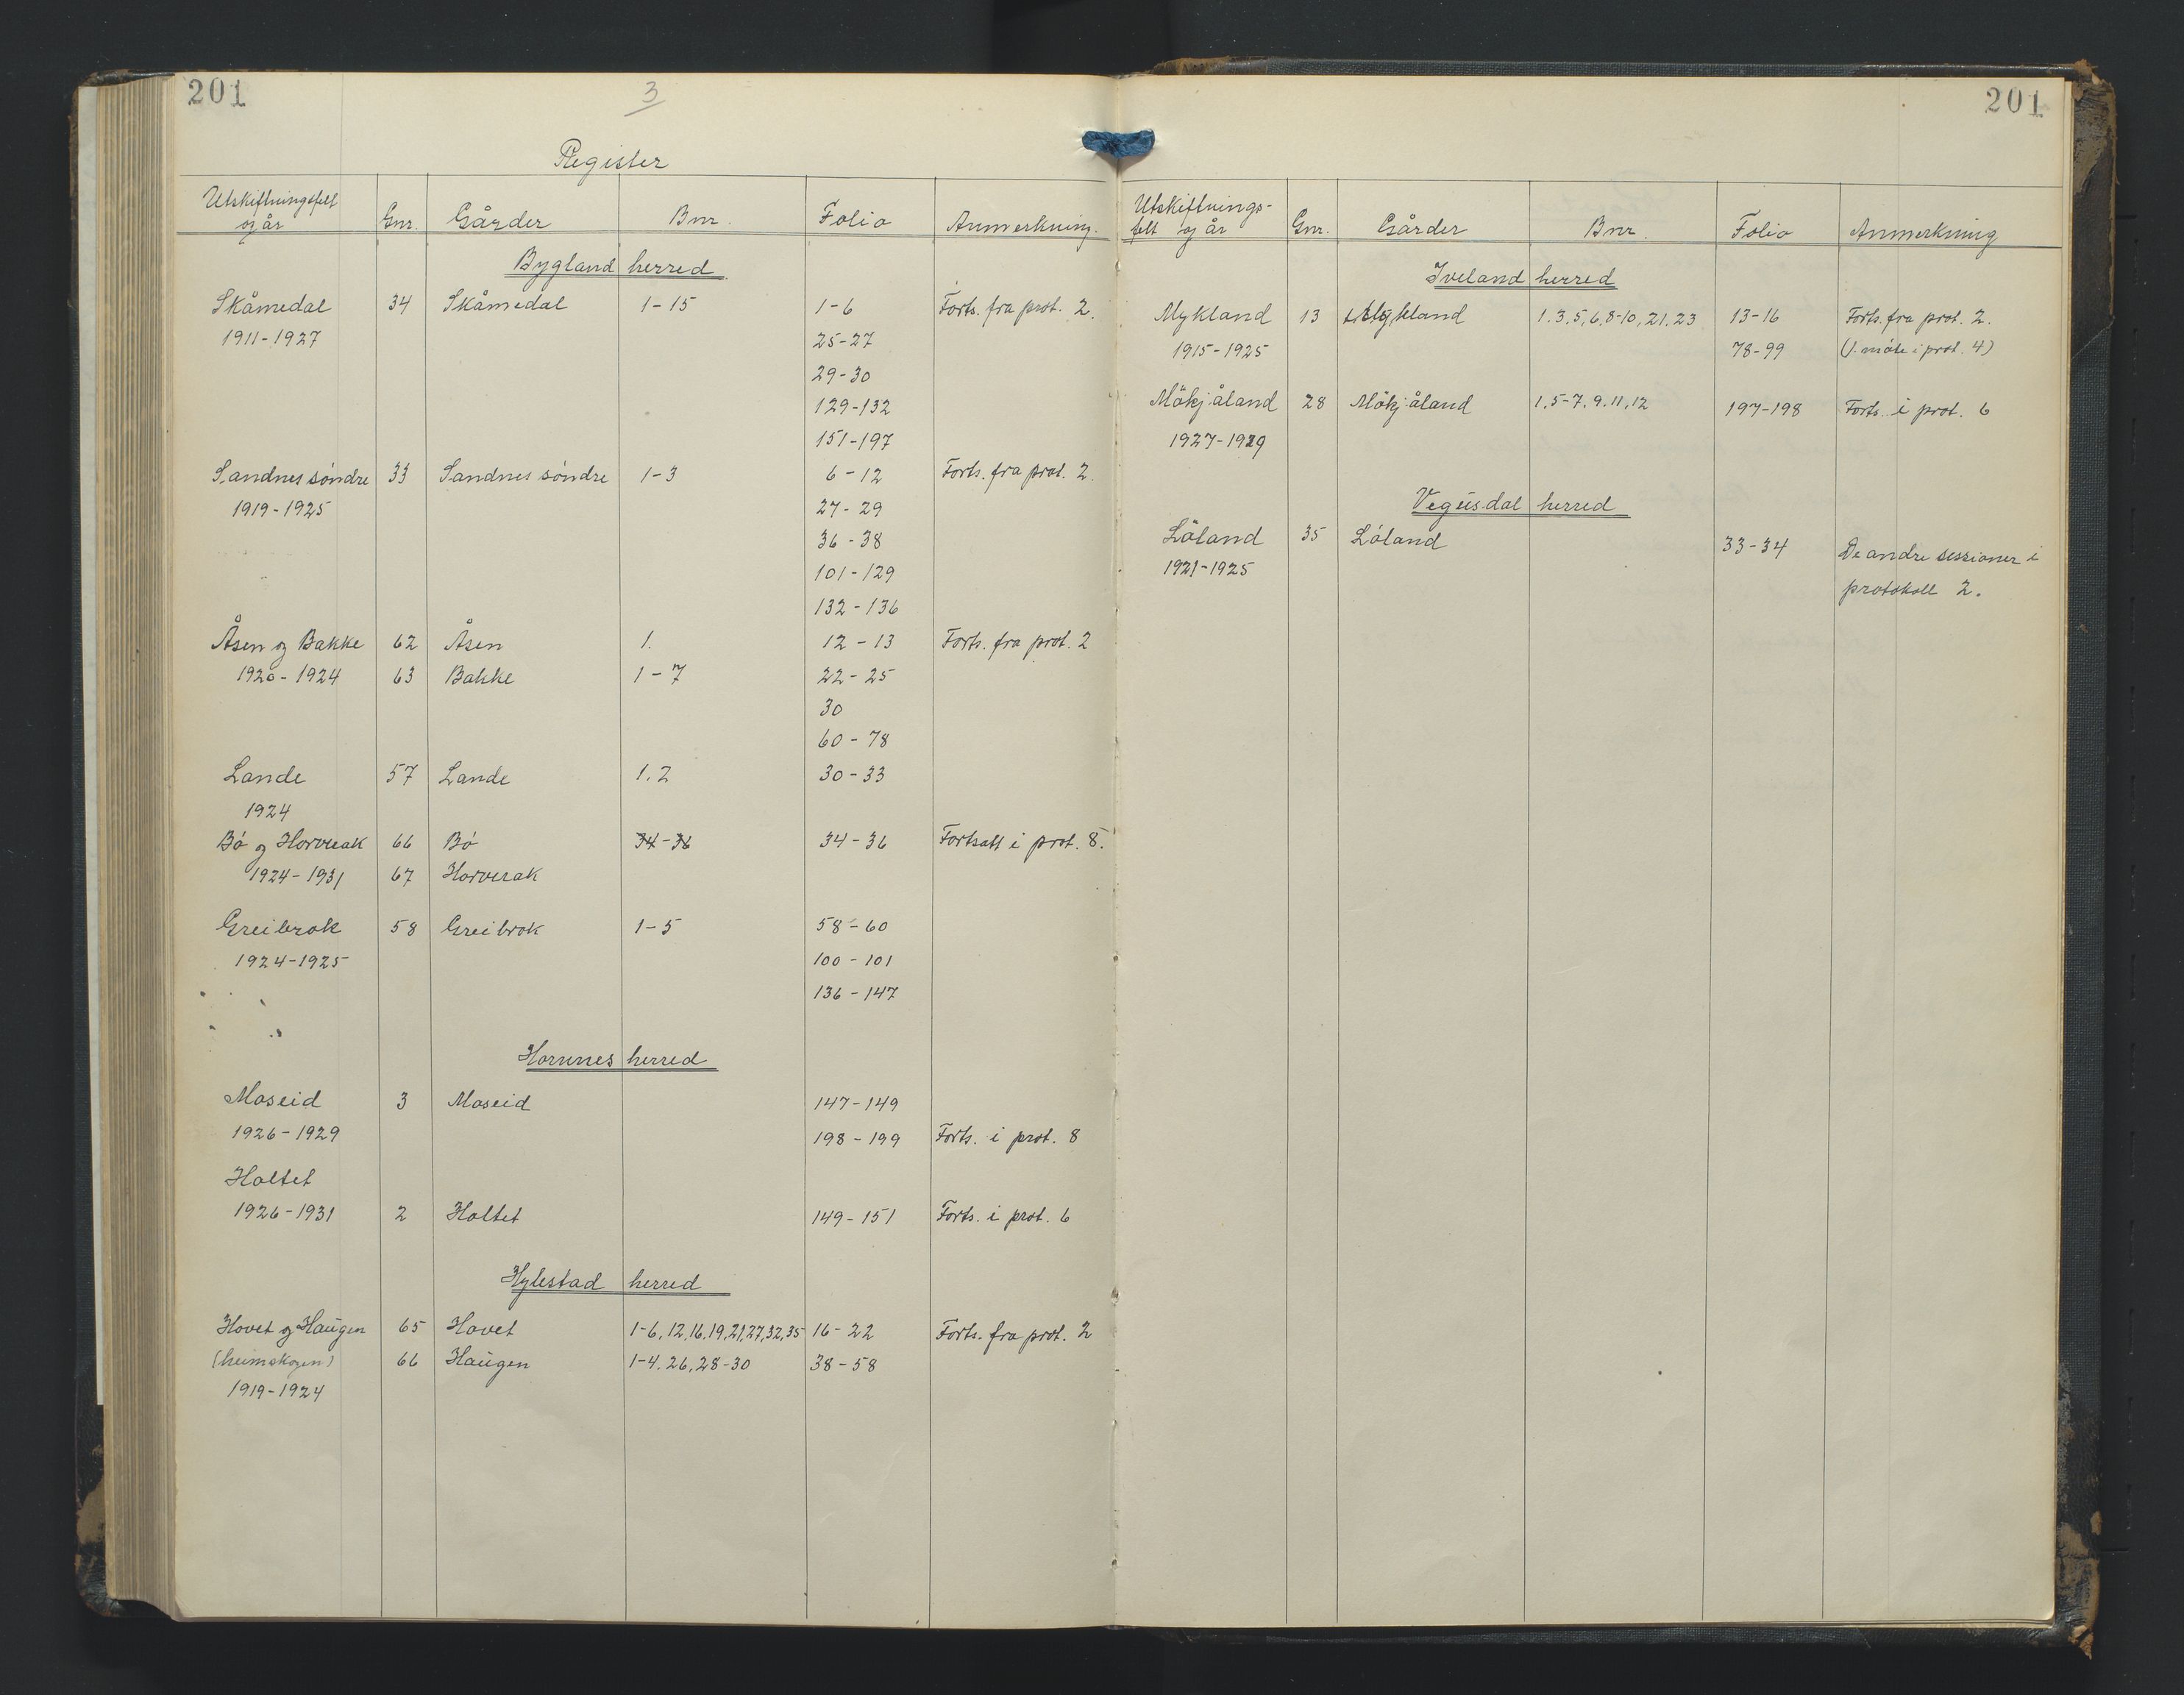 201
3
Register
Utskiftningsfelt og år Gnr. Gårder Bnr. Folio Anmerkning.
Bygland herred
Skåmedal 34 Skåmedal 1-15 1-6 Forts. fra prot. 2.
1911-1927 25-27
29-30
129-132
151-197
Sandnes söndre 33 Sandnes söndre 1-3 6-12 Forts. fra prot. 2.
1919-1925 27-29
36-38
101-129
132-136
Åsen og Bakke 62 Åsen 1. 12-13 Forts. fra prot. 2
1920-1924 63 Bakke 1-7 22-25
30
60-78
Lande 57 Lande 1.2 30-33
1924
Bö og Horverak 66 Bö 34-36 34-36 Fortsatt i prot. 8.
1924-1931 67 Horverak
Greibrok 58 Greibrok 1-5 58-60
1924-1925 100-101
136-147
Hornnes herred
Moseid 3 Moseid 147-149
1926-1929 198-199 Forts. i prot. 8
Holtet
1926-1931 2 Holtet 149-151 Forts. i prot. 6
Hylestad herred
Hovet og Haugen 65 Hovet 1-6,12,16,19,21,27,32,35 16-22 Forts. fra prot. 2
(heimskogen) 66 Haugen 1-4.26,28-30 38-58
1919-1924
201
Utskiftnings-
felt og år Gnr. Gårder Bnr. Folio Anmerkning
Iveland herred
Mykland 13 Mykland 1.3,5,6,8-10,21,23 13-16 Forts. fra prot. 2.
1915-1925 78-99 (1. möte i prot. 4)
Mökjåland 28 Mökjåland 1.5-7.9.11,12 197-198 Forts. i prot. 6
1927-1929
Vegusdal herred
Löland 35 Löland 33-34 De andre sessioner i
1921-1925 protokoll 2.